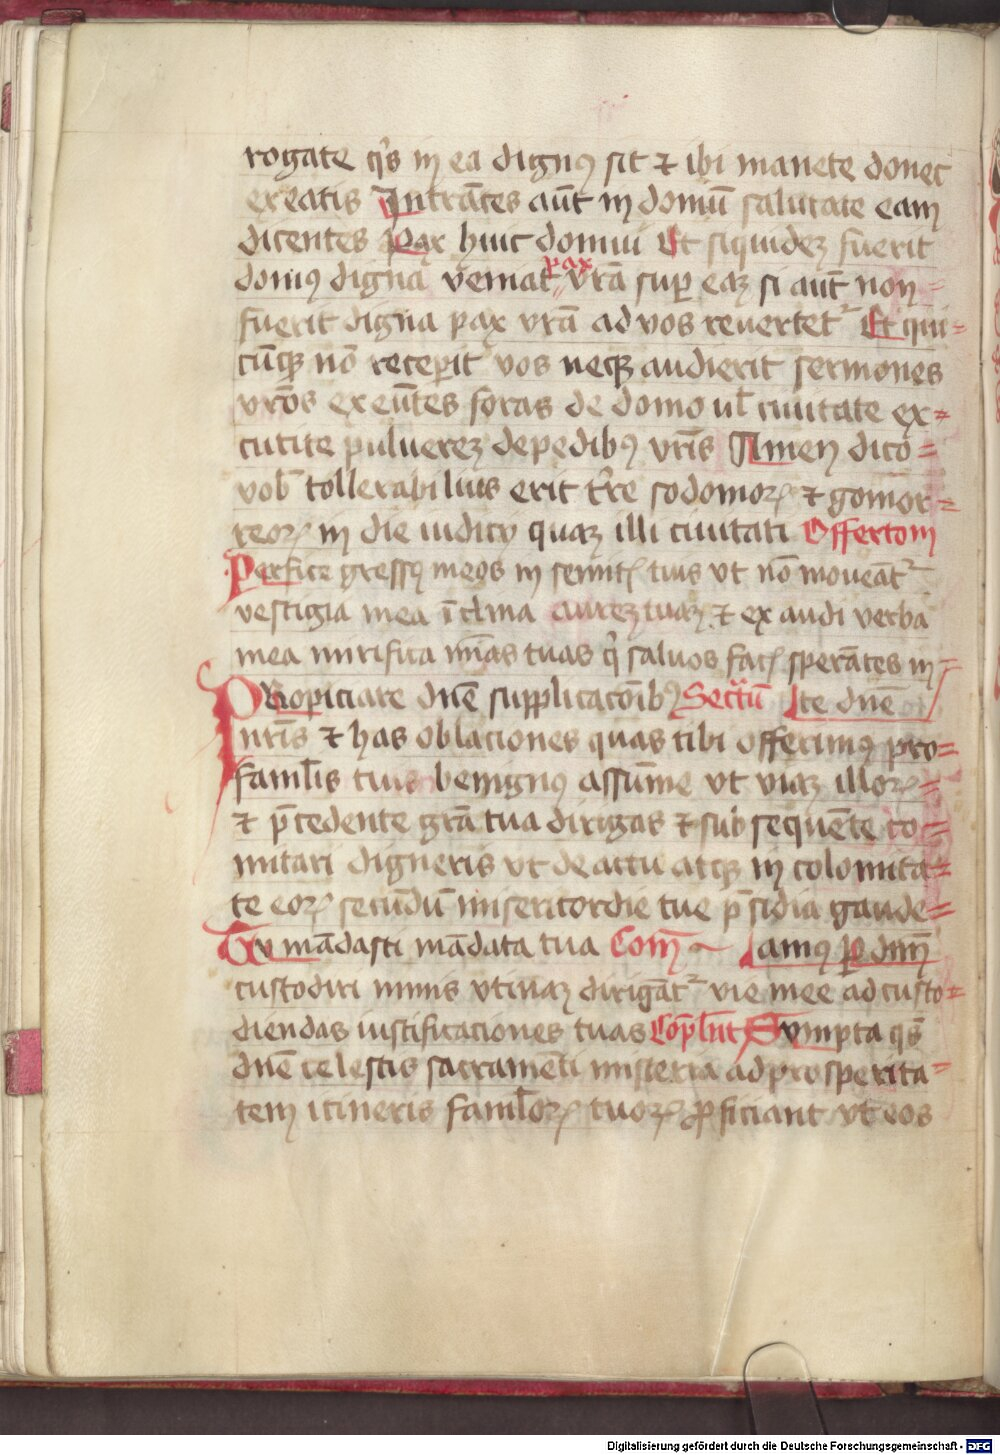 rogate q̓s in ea dignꝰ sit ⁊ ibi manete donec
exeatis Intrātes aūt in domū salutate eam
dicentes Pax huic domui Et siquideꝫ fuerit
domꝰ digna veniat pax vrā sup eaꝫ si aūt non
fuerit digna pax vrā ad vos reuertet᷑ Et qui=
cūqꝫ nō receperit vos neqꝫ audierit sermones
vrōs exeūtes foras de domo ul̄ ciuitate ex=
cutite puluereꝫ de pedibꝰ vrīs Amen dico=
vob̄ tollerabilius erit tr̄re sodomoꝝ ⁊ gomor=
reoꝝ in die iudicij quaꝫ illi ciuitati Offertom
Perfice gressꝰ meos in semitꝭ tuis vt nō moueāt᷑
vestigia mea īclina aureꝫ tuaꝫ ⁊ exaudi verba
mea mirifica mīas tuas q̓ saluos facꝭ sperātes in=
PRopiciare dnē supplicacōibꝰ Sectū Ite dnē
nrīs ⁊ has oblaciones quas tibi offerimꝰ pro=
famīlis tuis benignꝰ assūme vt viaꝫ illoꝝ=
⁊ p̄cedente grā tua dirigas ⁊ subsequēte co=
mitari digneris vt de actu atqꝫ in colomita=
te eoꝝ secūdū misericordie tue p̄sidia gaude=
Tu mādasti mādata tua Com̄ amꝰ ꝑ dnm̄
custodiri nimis vtinaꝫ dirigāt᷑ vie mee ad custo=
diendas iustificaciones tuas Cōpl̄nt Sumpta qs̄
dnē celestis sacramēti misteria ad prosperita=
tem itineris famīloꝝ tuoꝝ ꝓficiant vt eos
Digitalisierung gefördert durch die Deutsche Forschungsgemeinschaft - DFG